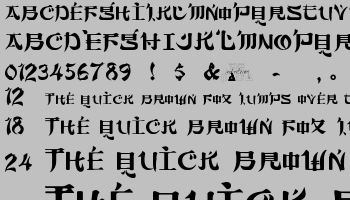 ABCDEFGHIJKLMNOPQRSTUV
ABCDEFGHIJKLMNOPQR
0123456789 ! $ & - , .
12 THE QUICK BROWN FOX JUMPS OVER
18 THE QUICK BROWN FOX
24 THE QUICK BROWN
THE QUICK